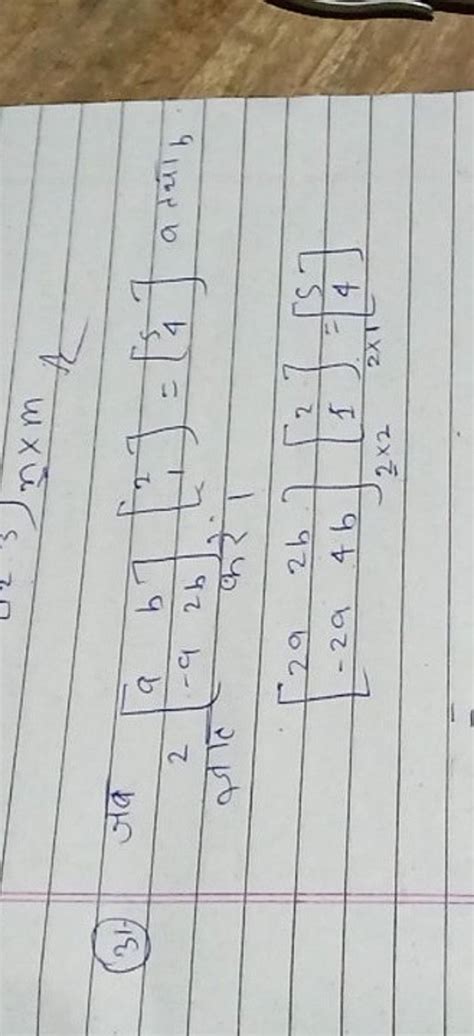 2 3] n×m
(31) जब 2 [a b -a 2b] [2 1] = [5 4] a तथा b
ज्ञात करे।
[2a 2b -2a 4b]2×2 [2 1]2×1 = [5 4]